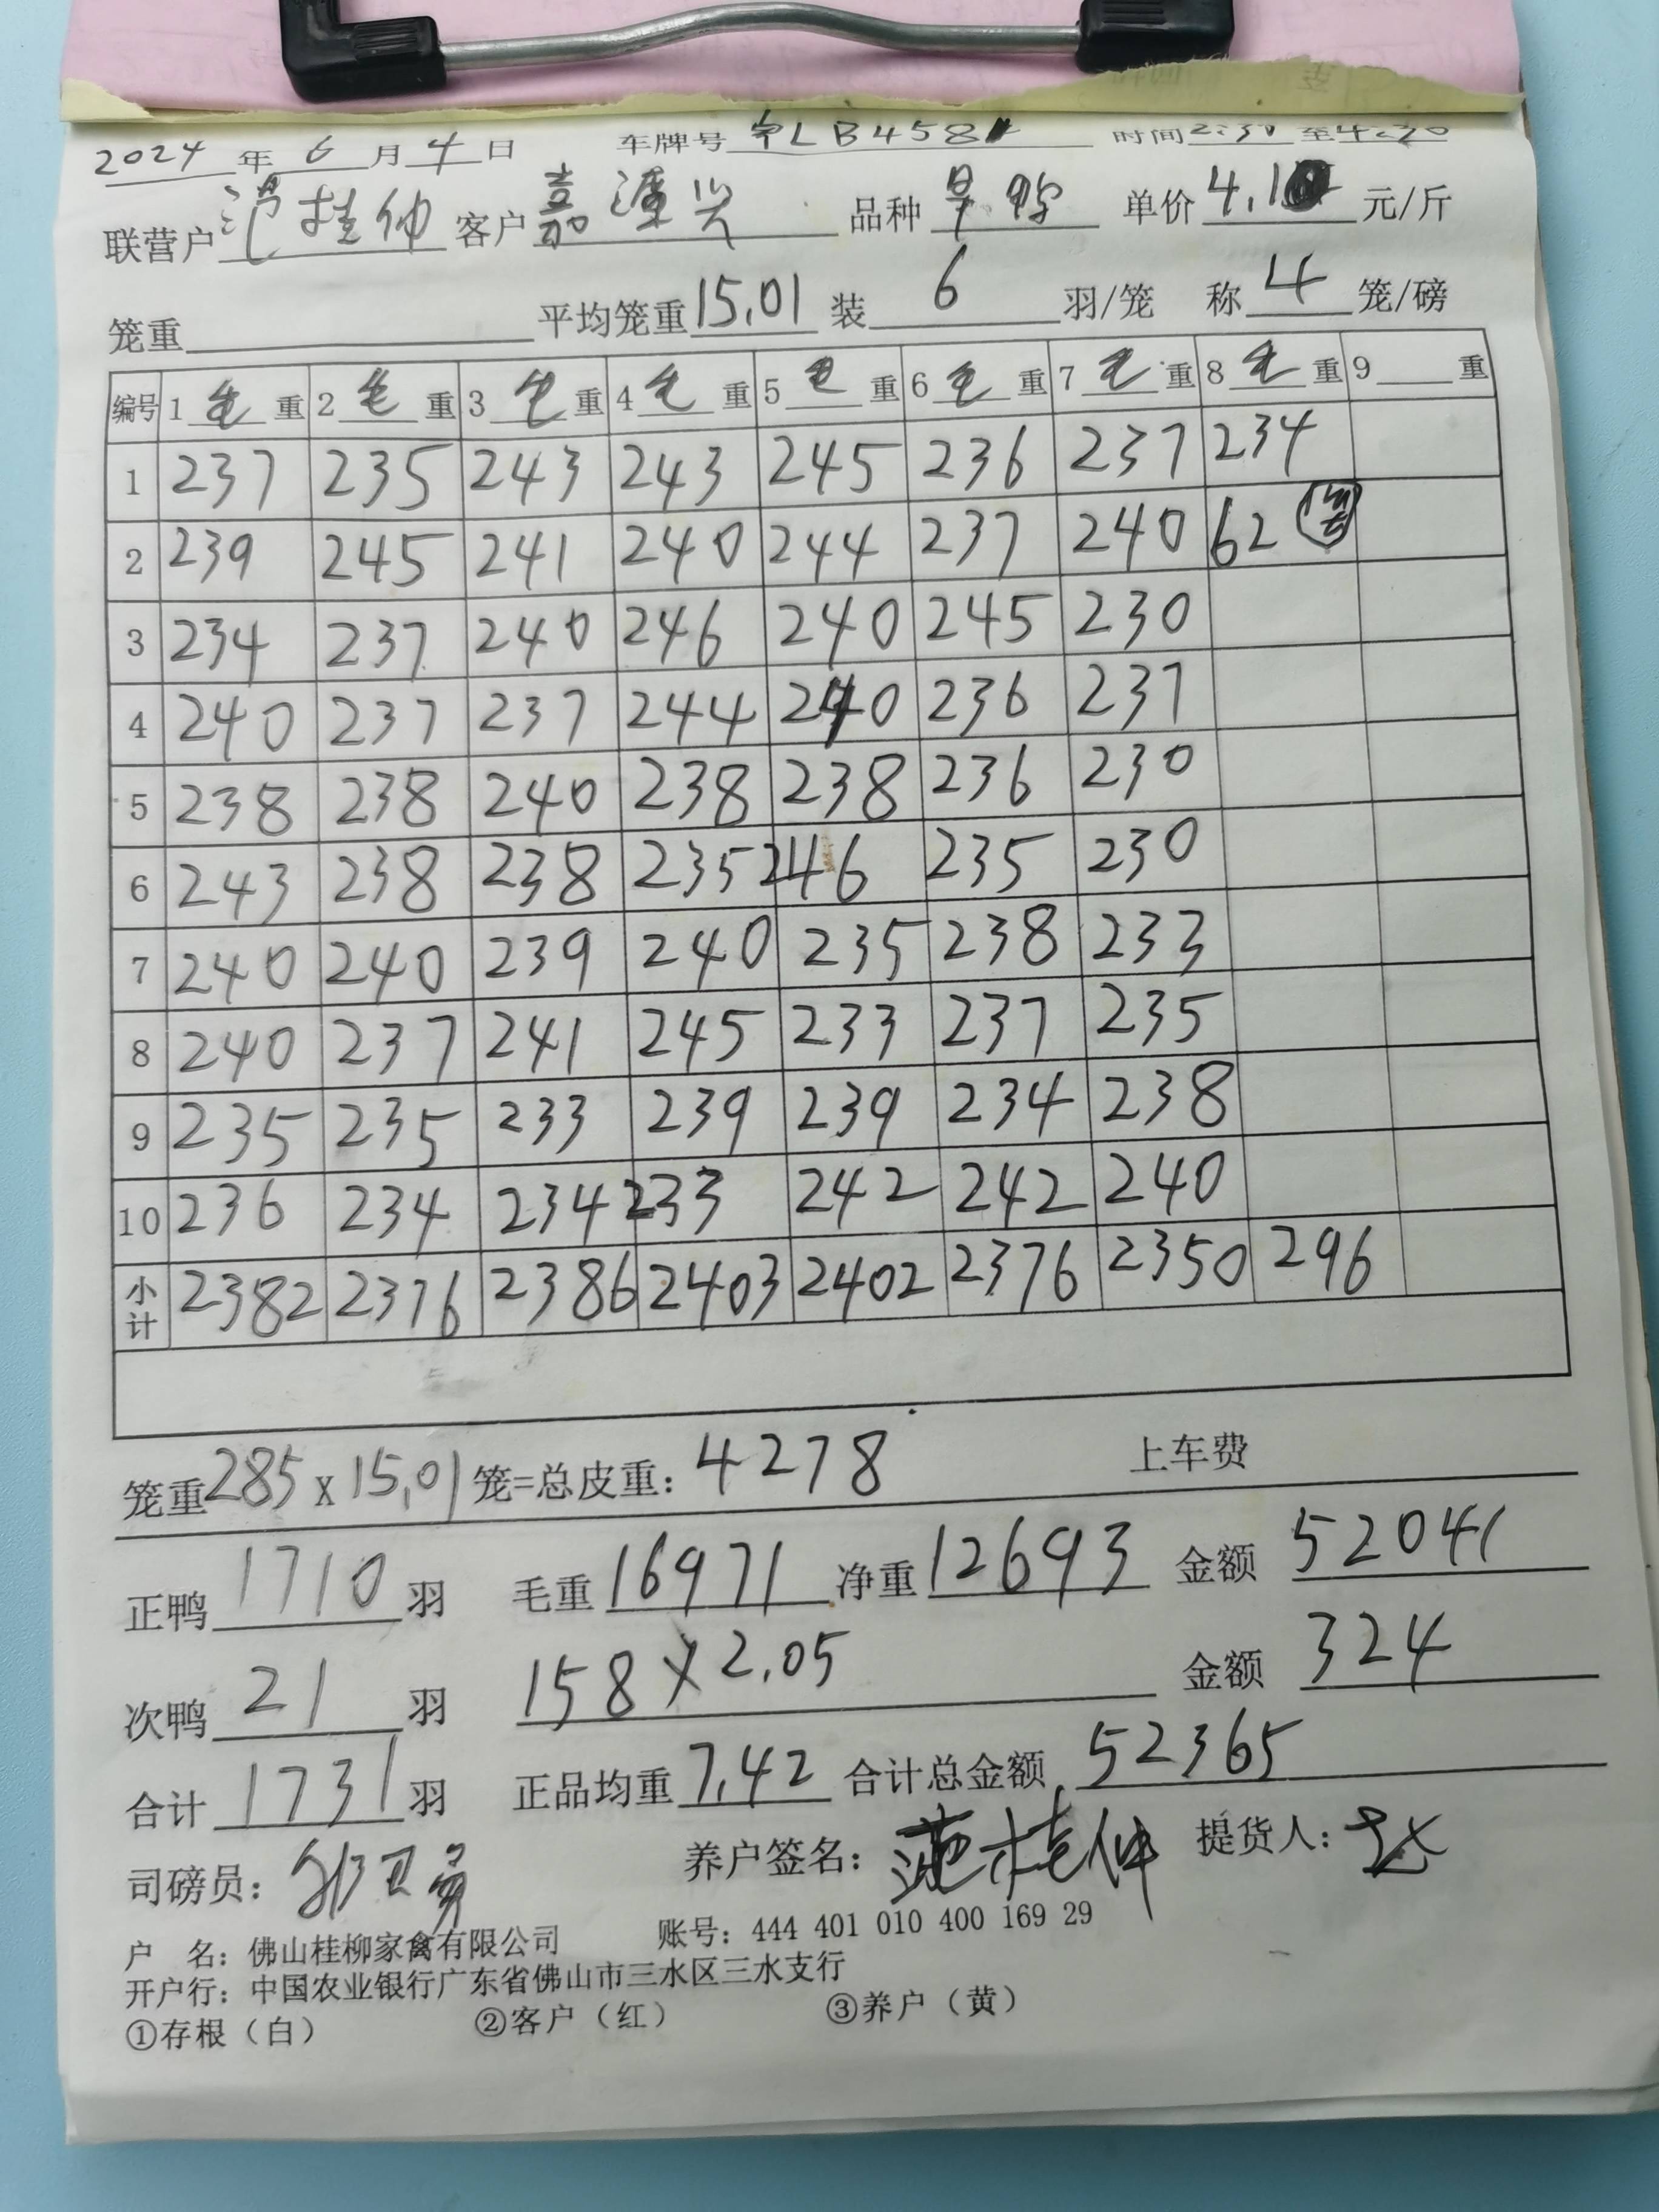 2024 年 6 月 4 日 车牌号 粤LB458 时间 2:30 至 4:30
联营户 范桂仲 客户 嘉潓兴 品种 旱鸭 单价 4.1 元/斤
笼重 平均笼重 15.01 装 6 羽/笼 称 4 笼/磅
编号 1 毛 重 2 毛 重 3 毛 重 4 毛 重 5 毛 重 6 毛 重 7 毛 重 8 毛 重 9 重
1 237 235 243 243 245 236 237 234
2 239 245 241 240 244 237 240 62
3 234 237 240 246 240 245 230
4 240 237 237 244 240 236 237
5 238 238 240 238 238 236 230
6 243 238 238 235 246 235 230
7 240 240 239 240 235 238 233
8 240 237 241 245 233 237 235
9 235 235 233 239 239 234 238
10 236 234 234 233 242 242 240
小计 2382 2376 2386 2403 2402 2376 2350 296
笼重 285 x 15.01 笼=总皮重: 4278 上车费
正鸭 1710 羽 毛重 16971 净重 12693 金额 52041
次鸭 21 羽 158 x 2.05 金额 324
合计 1731 羽 正品均重 7.42 合计总金额 52365
司磅员: 养户签名: 范桂仲 提货人:
户 名: 佛山桂柳家禽有限公司 账号: 444 401 010 400 169 29
开户行: 中国农业银行广东省佛山市三水区三水支行
①存根（白） ②客户（红） ③养户（黄）